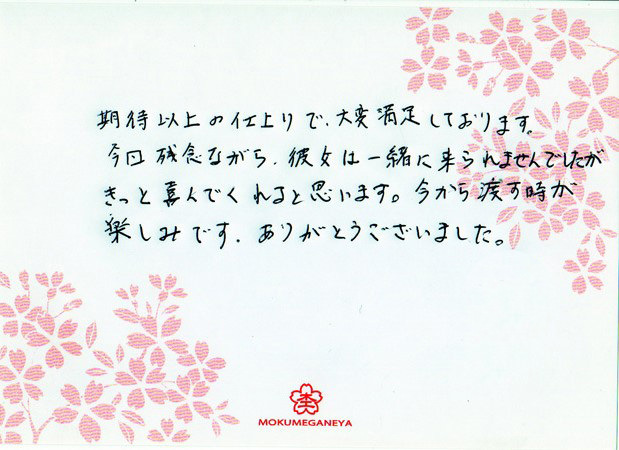 期待以上の仕上りで、大変満足しております。
今回残念ながら、彼女は一緒に来られませんでしたが
きっと喜んでくれると思います。今から渡す時が
楽しみです。ありがとうございました。
MOKUMEGANEYA